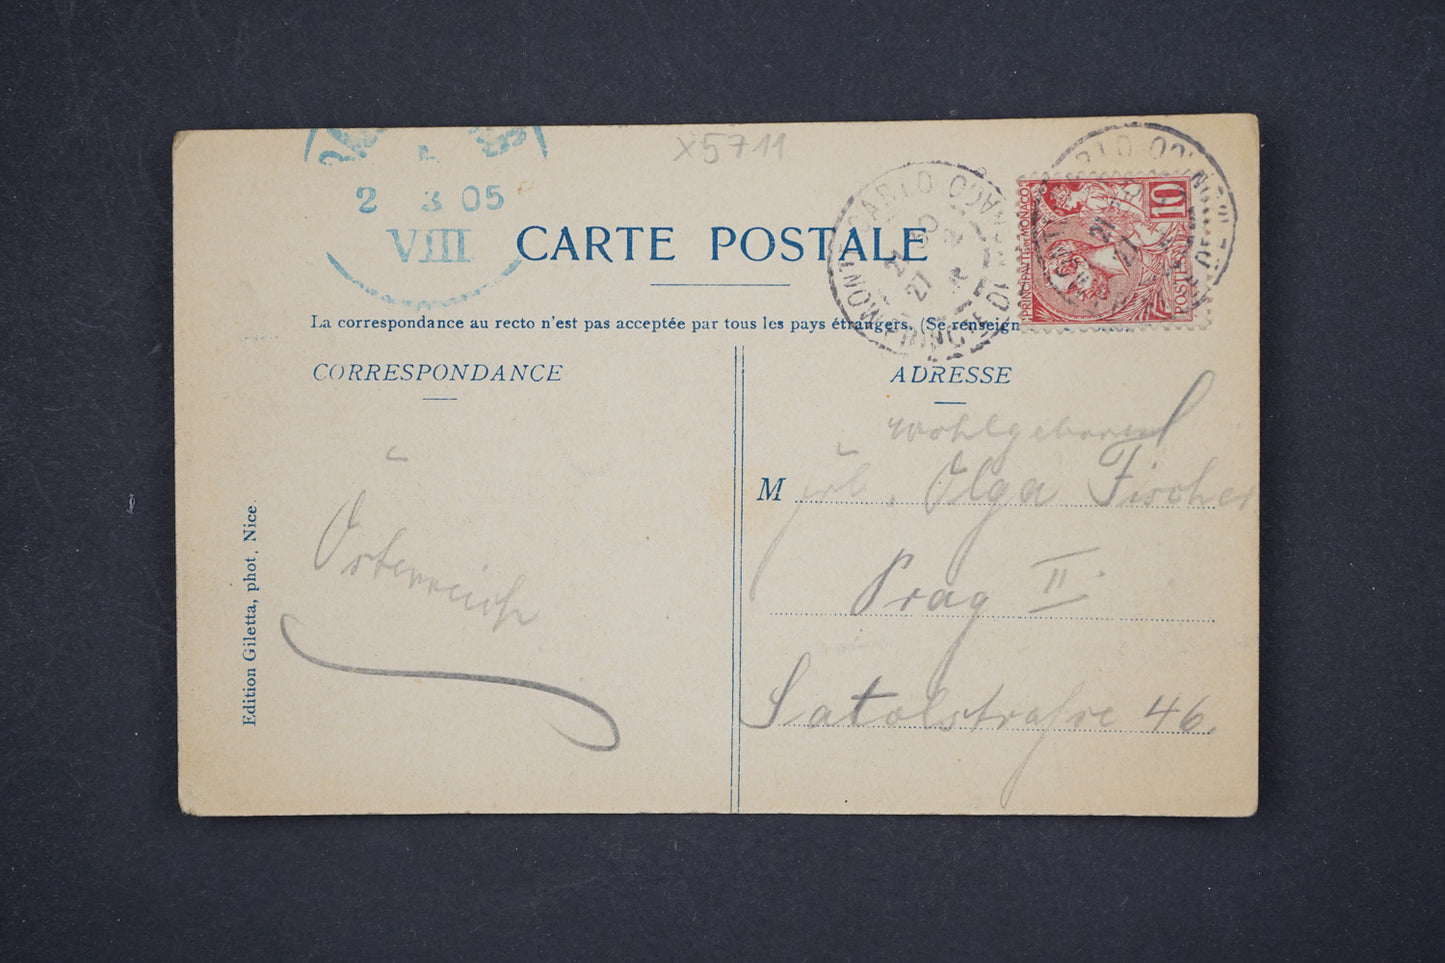 X5711
2 3 05
VIII
CARTE POSTALE
MONTE CARLO
10
PRINCIPAUTÉ DE MONACO
POSTES
La correspondance au recto n'est pas acceptée par tous les pays étrangers. (Se renseign
CORRESPONDANCE
ADRESSE
Wohlgeboren
M Frl. Olga Fischer
Prag II.
Österreich
46.
Edition Giletta, phot, Nice